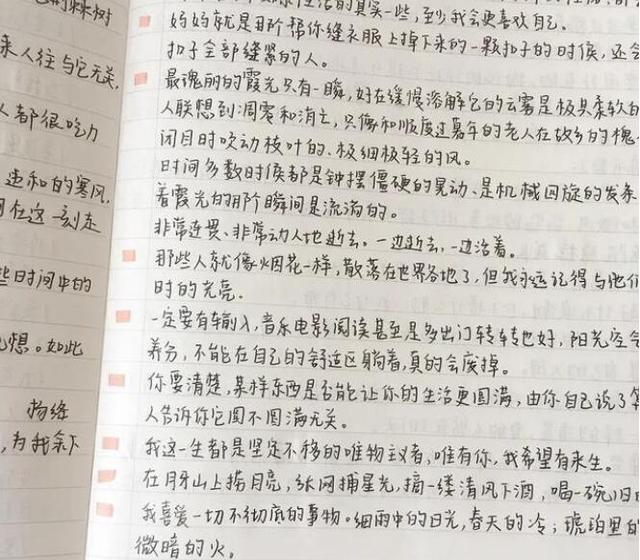 的林树
来人往与它无关,
人都很吃力
违和的寒风,
在这一刻走
些时间中的
想。如此
拘络
,为我余下
生活的真实一些,至少我会更喜欢自己。
妈妈就是那个帮你缝衣服上掉下来的一颗扣子的时候,还会
扣子全部缝紧的人。
最瑰丽的霞光只有一瞬,好在缓慢溶解它的云雾是极具柔软的
人联想到凋零和消亡,只像和顺度过暮年的老人在故乡的槐
闭目时吹动枝叶的、极细极轻的风。
时间多数时候都是钟摆僵硬的晃动、是机械回旋的发条
着霞光的那个瞬间是流淌的。
非常连贯、非常动人地逝去。一边逝去,一边活着。
那些人就像烟花一样,散落在世界各地了,但我永远记得与他们
时的光亮.
一定要有输入,音乐电影阅读甚至是多出门转转也好,阳光空
养分,不能在自己的舒适区躺着,真的会废掉。
你要清楚,某样东西是否能让你的生活更圆满,由你自己说了算
人告诉你它圆不圆满无关。
我这一生都是坚定不移的唯物主义者,唯有你,我希望有来生。
在月牙山上捞月亮,纸网捕星光,摘一缕清风下酒,喝一碗旧
我喜爱一切不彻底的事物。细雨中的日光,春天的冷;琥珀里的
微暗的火。